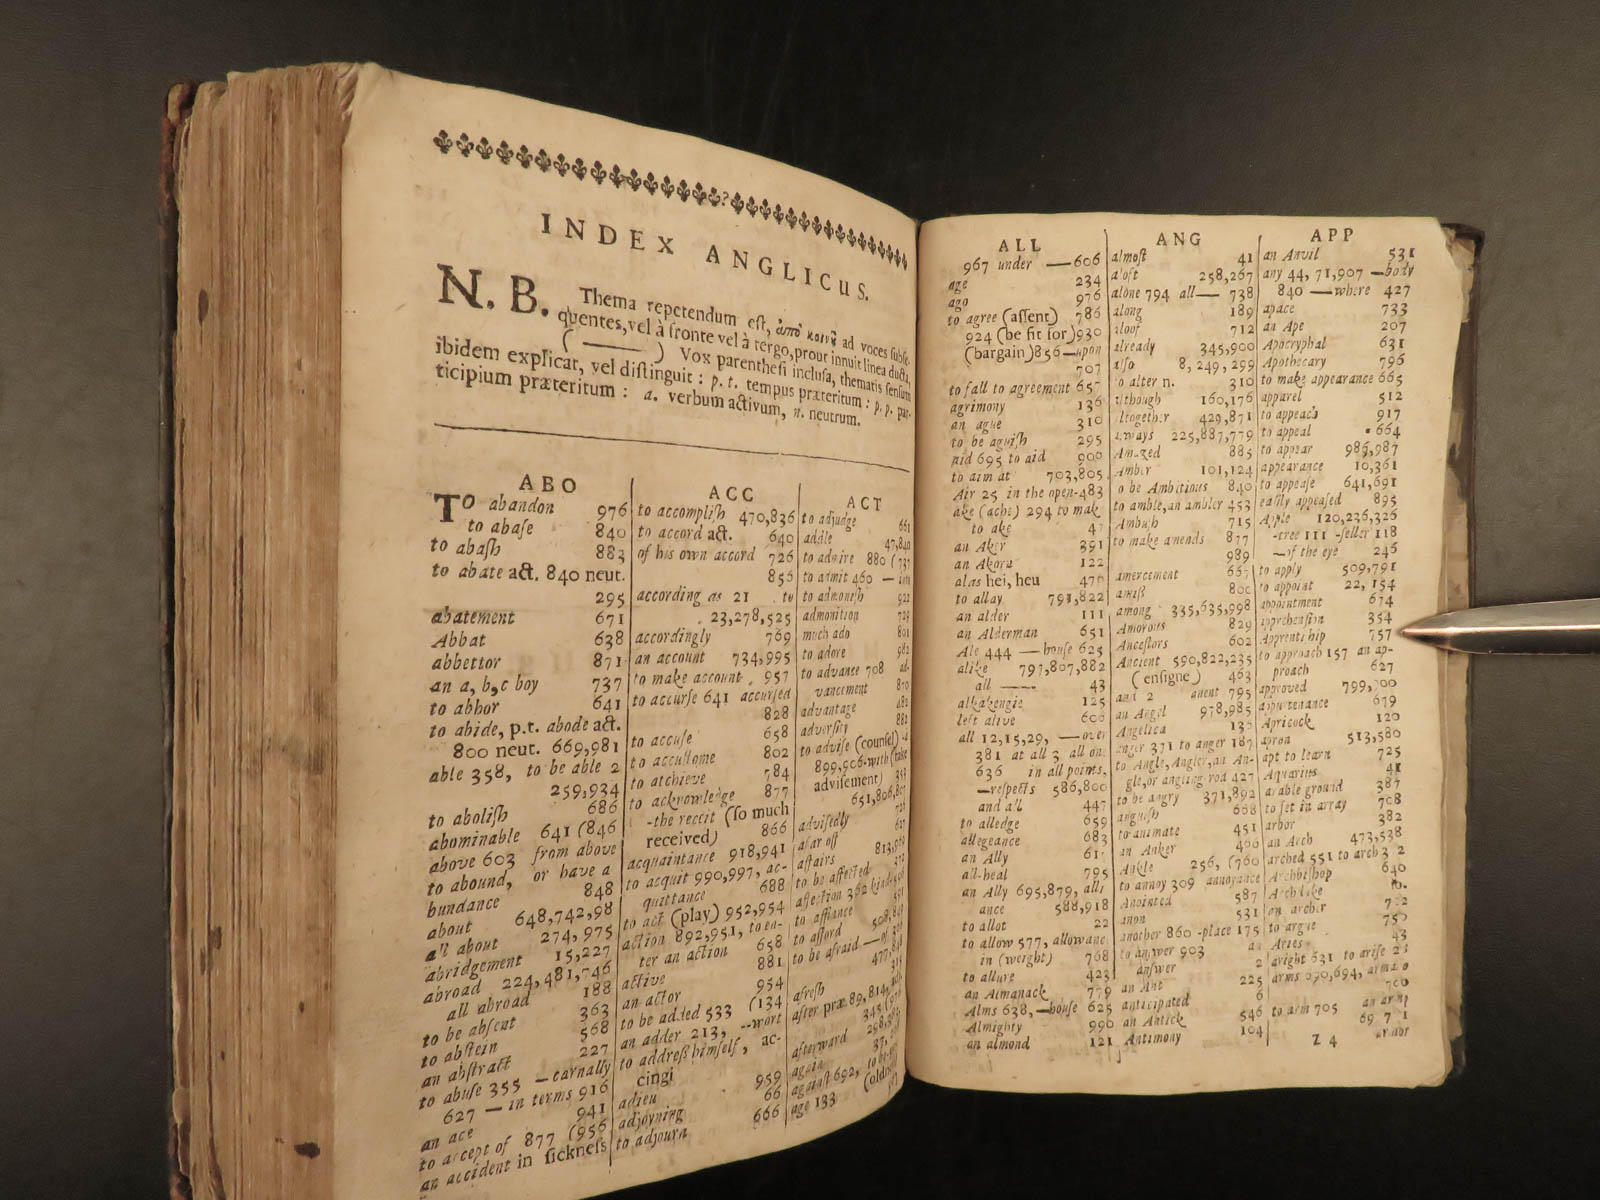 INDEX ANGLICUS.
N. B. Thema repetendum est, ἀπὸ κοινῦ ad voces subse-
quentes, vel à fronte vel à tergo, prout innuit linea ducta,
( —— ) Vox parenthesi inclusa, thematis sensum
ibidem explicat, vel distinguit : p. t. tempus præteritum : p. p. par-
ticipium præteritum : a. verbum activum, n. neutrum.
ABO
To abandon 976
to abase 840
to abash 883
to abate act. 840 neut.
295
abatement 671
Abbat 638
abbettor 871
an a, b, c boy 737
to abhor 641
to abide, p.t. abode act.
800 neut. 669,981
able 358, to be able 2
259,934
to abolish 686
abominable 641 (846
above 603 from above
to abound, or have a
bundance 848
about 648,742,98
all about 274,975
abridgement 15,227
abroad 224,481,746
all abroad 188
to be absent 363
to abstein 568
an abstract 227
to abuse 355 —carnally
627 —in terms 916
an ace 941
to accept of 877 (956
an accident in sickness
ACC
to accomplish 470,836
to accord act. 640
of his own accord 726
856
according as 21 to
23,278,525
accordingly 769
an account 734,995
to make account 957
to accurse 641 accursed
828
to accuse 658
to accustome 802
to atchieve 784
to acknowledge 877
-the receit (so much
received) 866
acquaintance 918,941
to acquit 990,997, ac-
quittance 688
to act (play) 952,954
action 892,951, to en-
ter an action 658
active 881
an actor 954
to be added 533 (134
an adder 213, --wort
to address himself, ac-
cingi 959
adieu 66
adjoyning 666
to adjourn
ACT
to adjudge 661
addle 47,840
to admire 880
to admit 460
to admonish
admonition
much ado 801
to adore
to advance 708 ad-
vancement 870
advantage
adversity
to advise (counsel)
899,906-with (take
advisement)
advisedly
afar off
affairs
to be affected
affection 362
to affiance
to afford
to be afraid
afresh
after præ. 89,
afterward
again
against 692,
age 133 (oldness
ALL
967 under —606
age 234
ago 976
to agree (assent) 786
924 (be fit for) 930
(bargain) 856—upon
707
to fall to agreement 657
agrimony 136
an ague 310
to be aguish 295
aid 695 to aid 900
to aim at 703,805
Air 25 in the open-483
ake (ache) 294 to mak
to ake
an Aker 391
an Akorn 122
alas hei, heu 470
to allay 791,822
an alder 111
an Alderman 651
Ale 444 —house 625
alike 797,807,882
all —— 43
alkakengie 125
left alive 606
all 12,15,29, —over
381 at all 3 all on
636 in all points,
—respects 586,800
and all 447
to alledge 659
allegeance 683
an Ally
all-heal 795
an Ally 695,879, alli
ance 588,918
to allot 22
to allow 577, allowanc
in (weight) 768
to allure 423
an Almanack 779
Alms 638, —house 625
Almighty 990
an almond 121
ANG
almost 41
aloft 258,267
alone 794 all— 738
along 189
aloof 712
already 345,900
also 8, 249, 299
to alter n. 310
although 160,176
altogether 429,871
always 225,887,779
Amazed 885
Amber 101,124
to be Ambitious 840
to amble, an ambler 453
Ambush 715
to make amends 877
989
amercement 667
amiss 800
among 335,635,998
Amorous 829
Ancestors 602
Ancient 590,822,235
(ensigne) 463
and 2 anent 795
an Angel 978,985
Angelica
anger 371 to anger 187
to Angle, Angler, an An-
gle, or angling-rod 427
to be angry 371,892
anguish 668
to animate 451
an Anker 466
Ankle 256, (760
to annoy 309 annoyance
Anointed 587
anon 531
another 860 -place 175
to answer 903 an
answer 2
an Ant 225
anticipated 6
an Antick 546
Antimony 104
APP
an Anvil 531
any 44, 71,907 —body
840 —where 427
apace 733
an Ape 207
Apocryphal 631
Apothecary 796
to make appearance 665
apparel 512
to appeach 917
to appeal 664
to appear 986,987
appearance 10,361
to appease 641,691
easily appeased 895
Apple 120,236,326
-tree 111 -seller 118
—of the eye 246
to apply 509,791
to appoint 22, 154
appointment 674
apprehension 354
Apprentiship 757
to approach 157 an ap-
proach 627
approved
appurtenance 679
Apricock 120
apron 513,580
apt to learn 725
Aquarius 41
arable ground 387
to set in array 708
arbor 382
an Arch 473,538
arched 551 to arch
Archbishop 640
Archlike
an archer
to argue 750
Aries 43
aright 631 to arise
arms
to arm 705 an army
Z 4